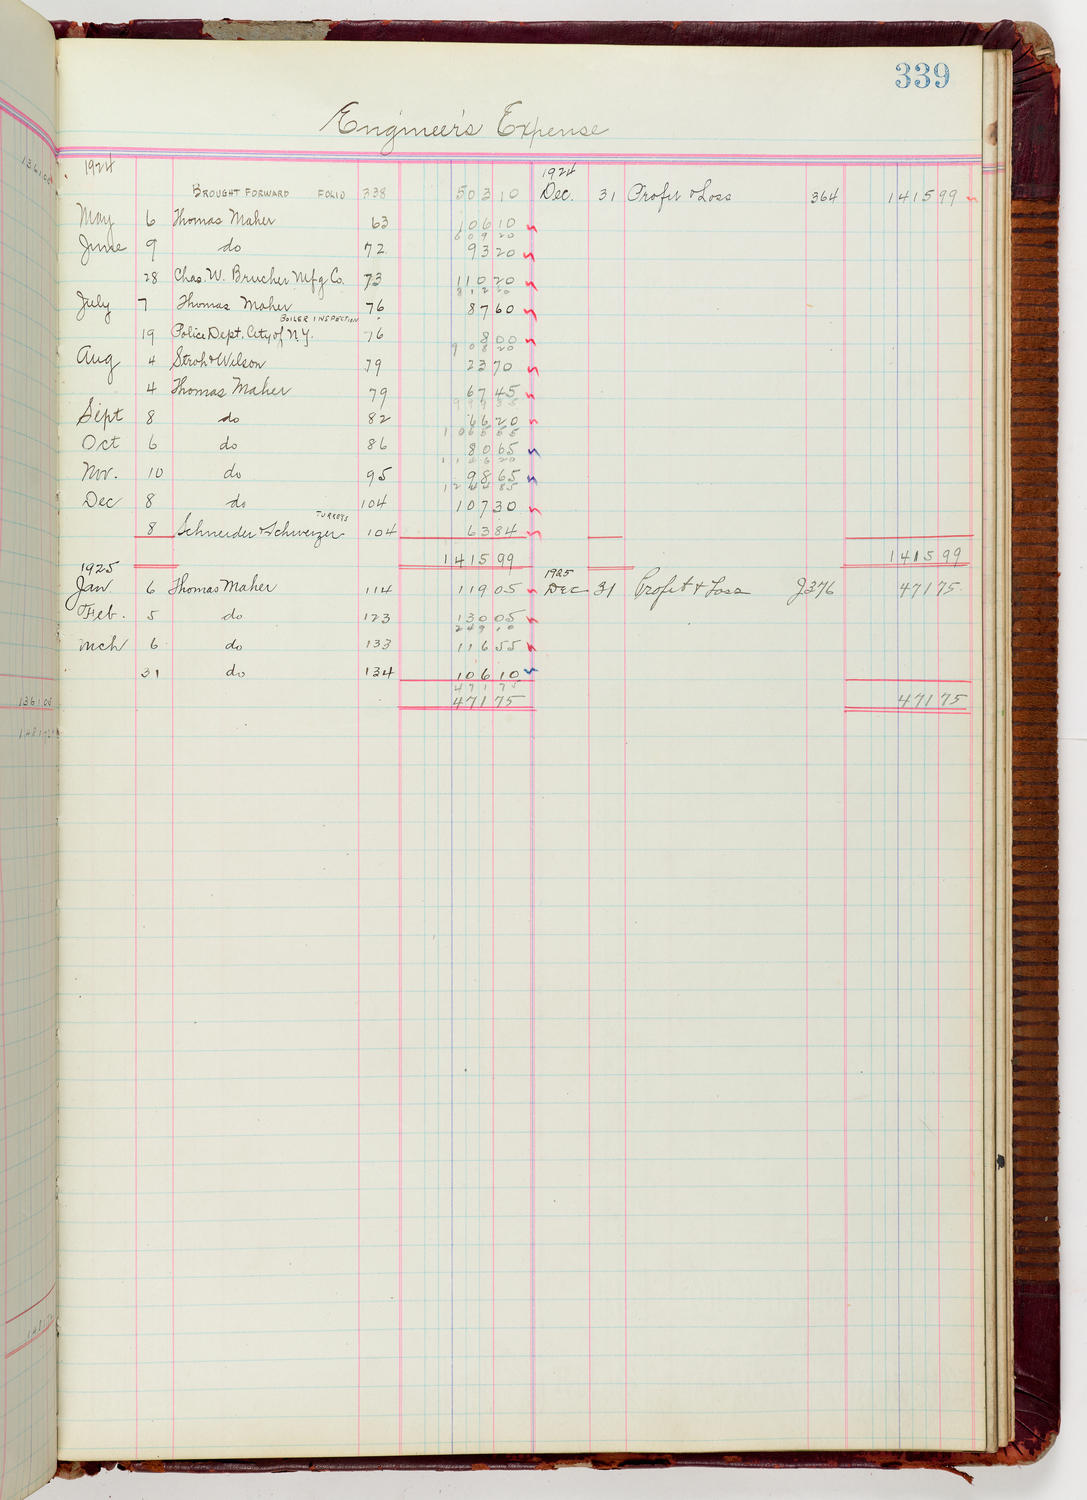 339
Engineer's Expense
1924 1924
BROUGHT FORWARD FOLIO 338 503 10 Dec. 31 Profit & Loss 364 1415 99
May 6 Thomas Maher 63 106 10
609 20
June 9 do 72 93 20
28 Chas. W. Brucher Mfg Co. 73 110 20
812 60
July 7 Thomas Maher 76 87 60
BOILER INSPECTION
19 Police Dept. City of N.Y. 76 8 00
908 20
Aug 4 Stroh & Wilson 79 23 70
4 Thomas Maher 79 67 45
999 35
Sept 8 do 82 66 20
1065 55
Oct 6 do 86 80 65
1146 20
Nov. 10 do 95 98 65
1244 85
Dec 8 do 104 107 30
TURRETS
8 Schneider & Schweizer 104 63 84
1415 99 1415 99
1925 1925
Jan 6 Thomas Maher 114 119 05 DEC 31 Profit & Loss J376 471 75
Feb. 5 do 123 130 05
249 10
Mch 6 do 133 116 55
31 do 134 106 10
471 75
471 75 471 75
1361 05